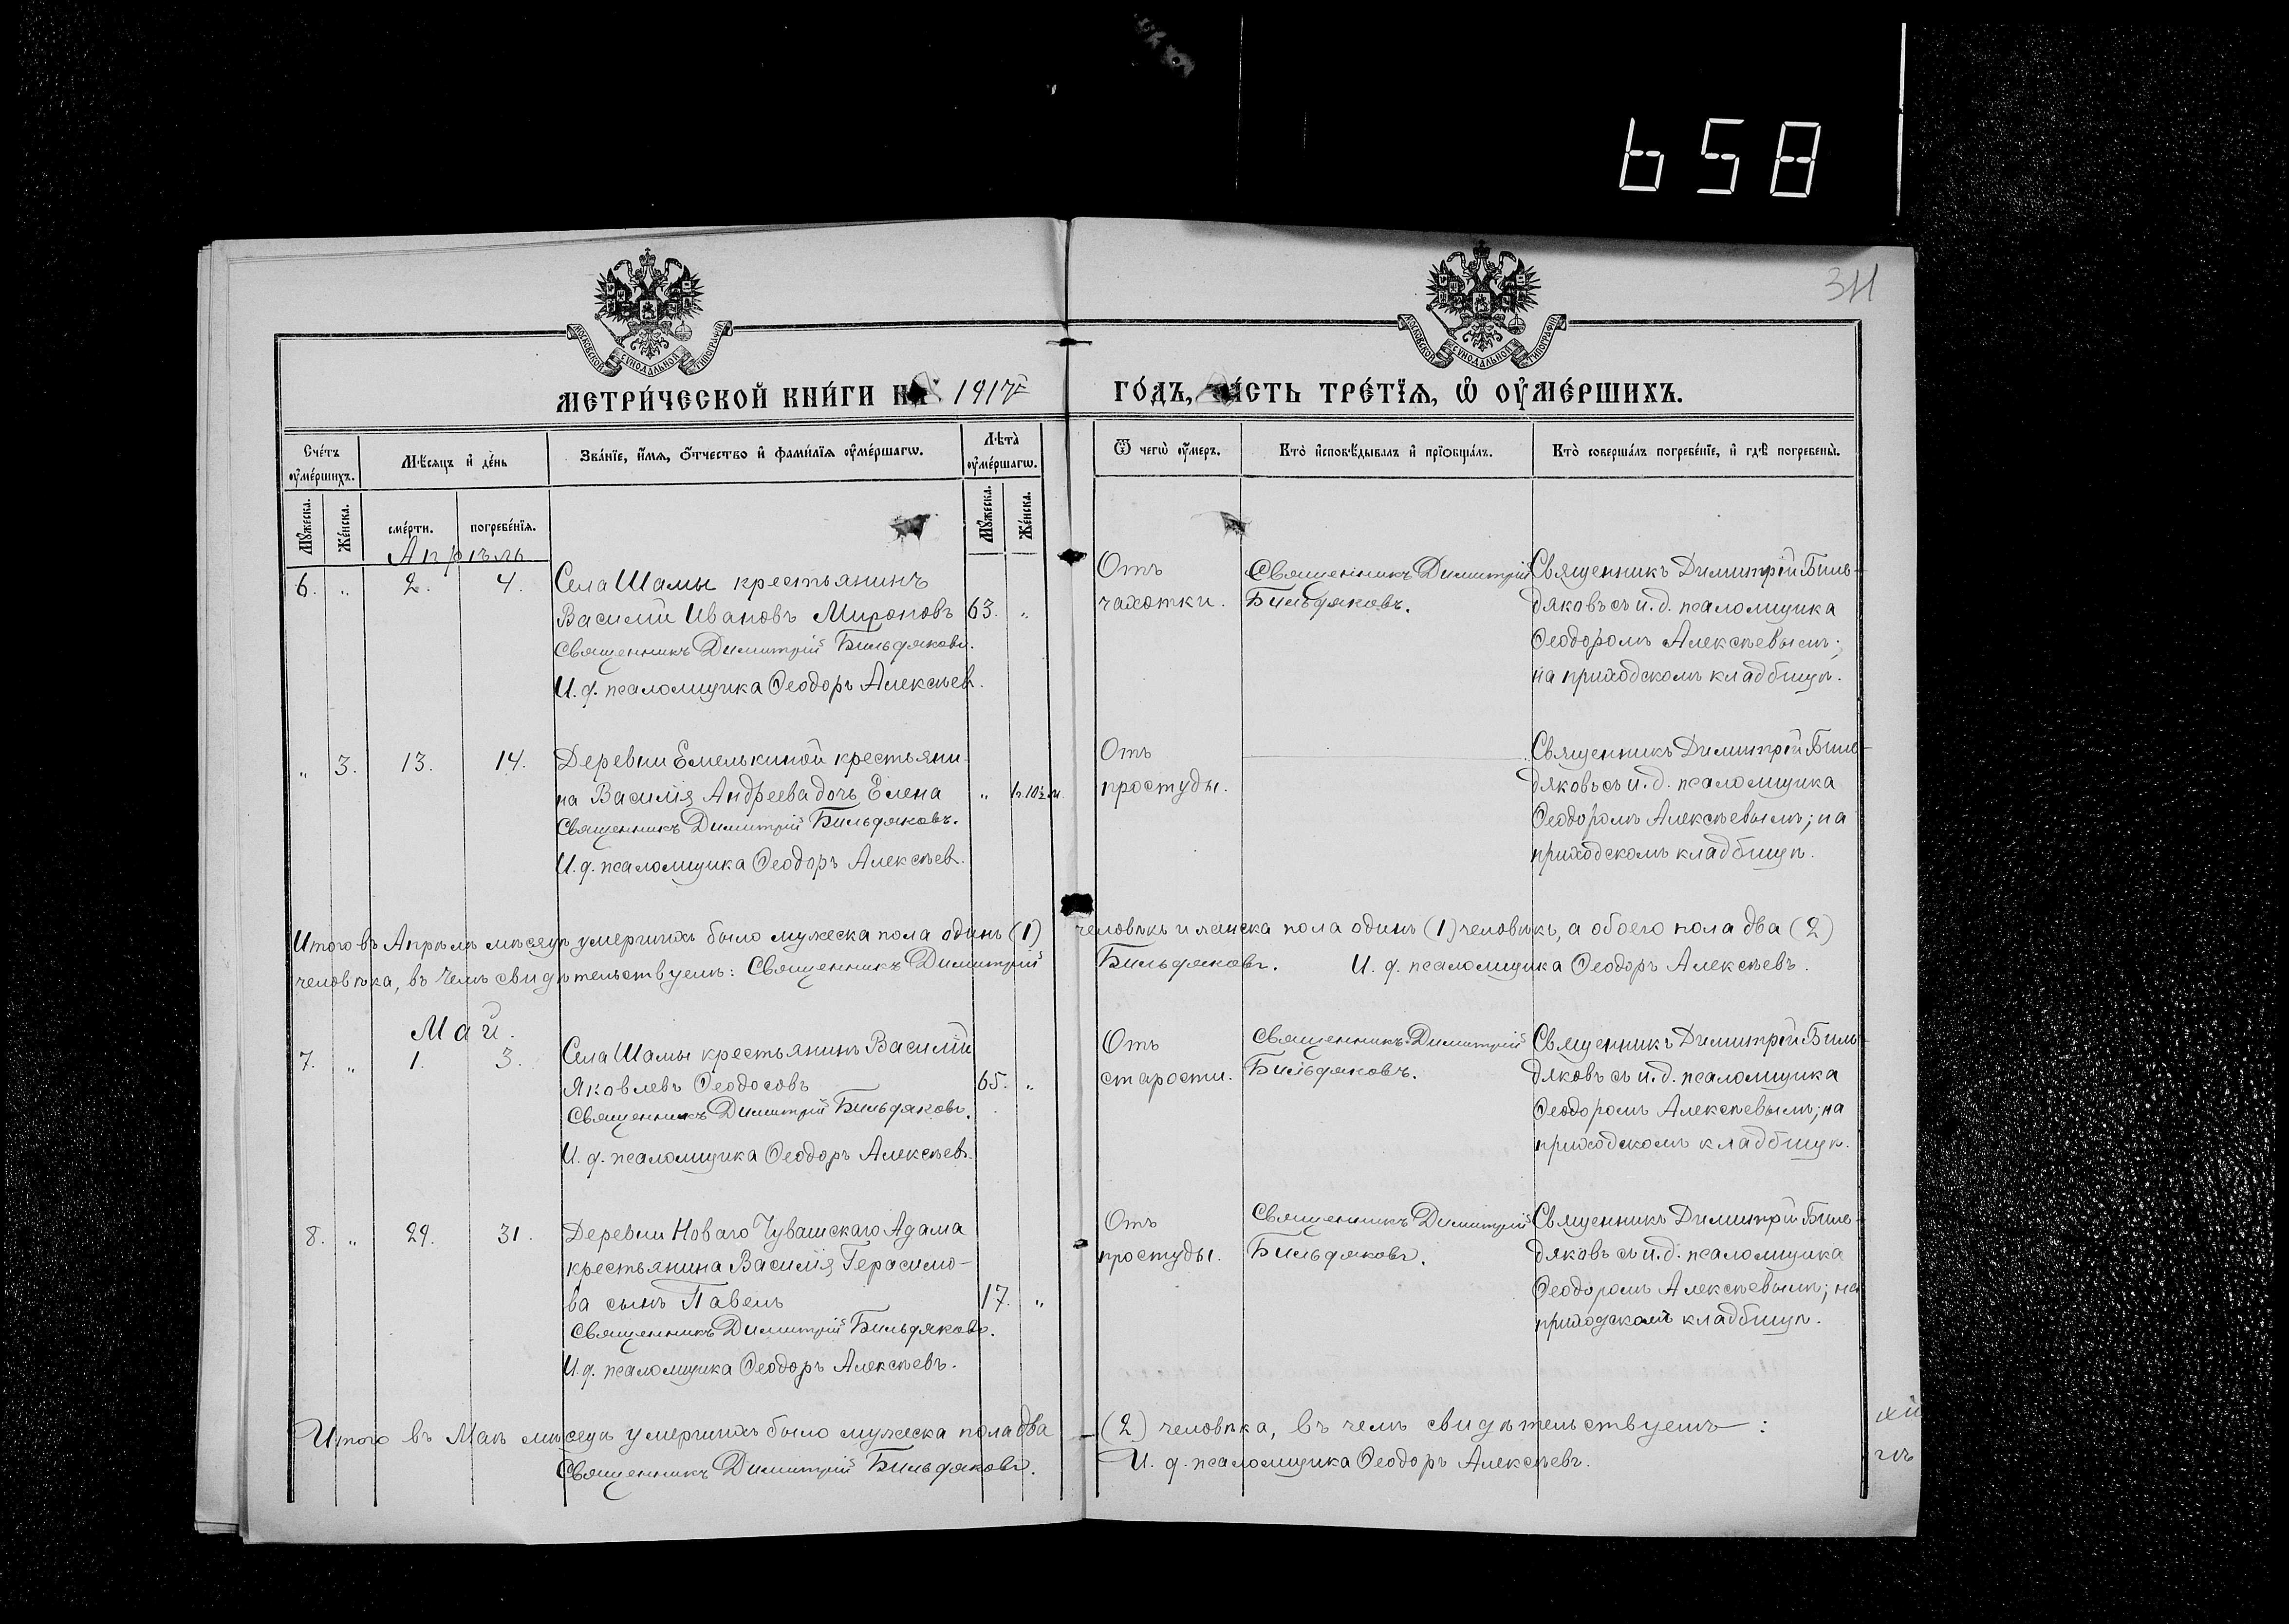 658
311
МОСКОВСКОЙ СУНОДАЛЬНОЙ ТИПОГРАФІИ
МОСКОВСКОЙ СУНОДАЛЬНОЙ ТИПОГРАФІИ
МЕТРИ́ЧЕСКОЙ КНИ́ГИ НА 1917 г.
ГО́ДЪ, ЧА́СТЬ ТРЕ́ТЇѦ, Ѡ҆ ОУ҆МЕ́РШИХЪ.
Сче́тъ оу҆ме́ршихъ.
Мѣ́сяцъ и҆ де́нь
Зва́нїе, и҆́мя, ѻ҆́тчество и҆ фами́лїя оу҆ме́ршагѡ.
Лѣта̀ оу҆ме́ршагѡ.
Ѿ чегѡ̀ оу҆́меръ.
Кто̀ и҆сповѣ́дывалъ и҆ прїѻбща́лъ.
Кто̀ соверша́лъ погребе́нїе, и҆ гдѣ̀ погребены̀.
Мꙋ́жеска.
Же́нска.
сме́рти.
погребе́нїя.
Мꙋ́жеска.
Же́нска.
Апрѣль
6. „ 2. 4. Села Шамы крестьянинъ
Василій Ивановъ Мироновъ 63. „
Священникъ Димитрій Бильдяковъ.
И. д. псаломщика Ѳеодоръ Алексѣевъ.
Отъ
чахотки.
Священникъ Димитрій
Бильдяковъ.
Священникъ Димитрій Биль-
дяковъ съ и. д. псаломщика
Ѳеодоромъ Алексѣевымъ;
на приходскомъ кладбищѣ.
„ 3. 13. 14. Деревни Емелькиной крестьяни-
на Василія Андреева дочь Елена „ 1г. 10½ м.
Священникъ Димитрій Бильдяковъ.
И. д. псаломщика Ѳеодоръ Алексѣевъ.
Отъ
простуды.
Священникъ Димитрій Биль-
дяковъ съ и. д. псаломщика
Ѳеодоромъ Алексѣевымъ; на
приходскомъ кладбищѣ.
Итого въ Апрѣлѣ мѣсяцѣ умершихъ было мужеска пола одинъ (1) человѣкъ и женска пола одинъ (1) человѣкъ, а обоего пола два (2)
человѣка, въ чемъ свидѣтельствуемъ: Священникъ Димитрій Бильдяковъ. И. д. псаломщика Ѳеодоръ Алексѣевъ.
Май.
7. „ 1. 3. Села Шамы крестьянинъ Василій
Яковлевъ Ѳеодосовъ 65. „
Священникъ Димитрій Бильдяковъ.
И. д. псаломщика Ѳеодоръ Алексѣевъ.
Отъ
старости.
Священникъ Димитрій
Бильдяковъ.
Священникъ Димитрій Биль-
дяковъ съ и. д. псаломщика
Ѳеодоромъ Алексѣевымъ; на
приходскомъ кладбищѣ.
8. „ 29. 31. Деревни Новаго Чувашскаго Адама
крестьянина Василія Герасимо-
ва сынъ Павелъ 17. „
Священникъ Димитрій Бильдяковъ.
И. д. псаломщика Ѳеодоръ Алексѣевъ.
Отъ
простуды.
Священникъ Димитрій
Бильдяковъ.
Священникъ Димитрій Биль-
дяковъ съ и. д. псаломщика
Ѳеодоромъ Алексѣевымъ; на
приходскомъ кладбищѣ.
Итого въ Маѣ мѣсяцѣ умершихъ было мужеска пола два (2) человѣка, въ чемъ свидѣтельствуемъ:
Священникъ Димитрій Бильдяковъ. И. д. псаломщика Ѳеодоръ Алексѣевъ.